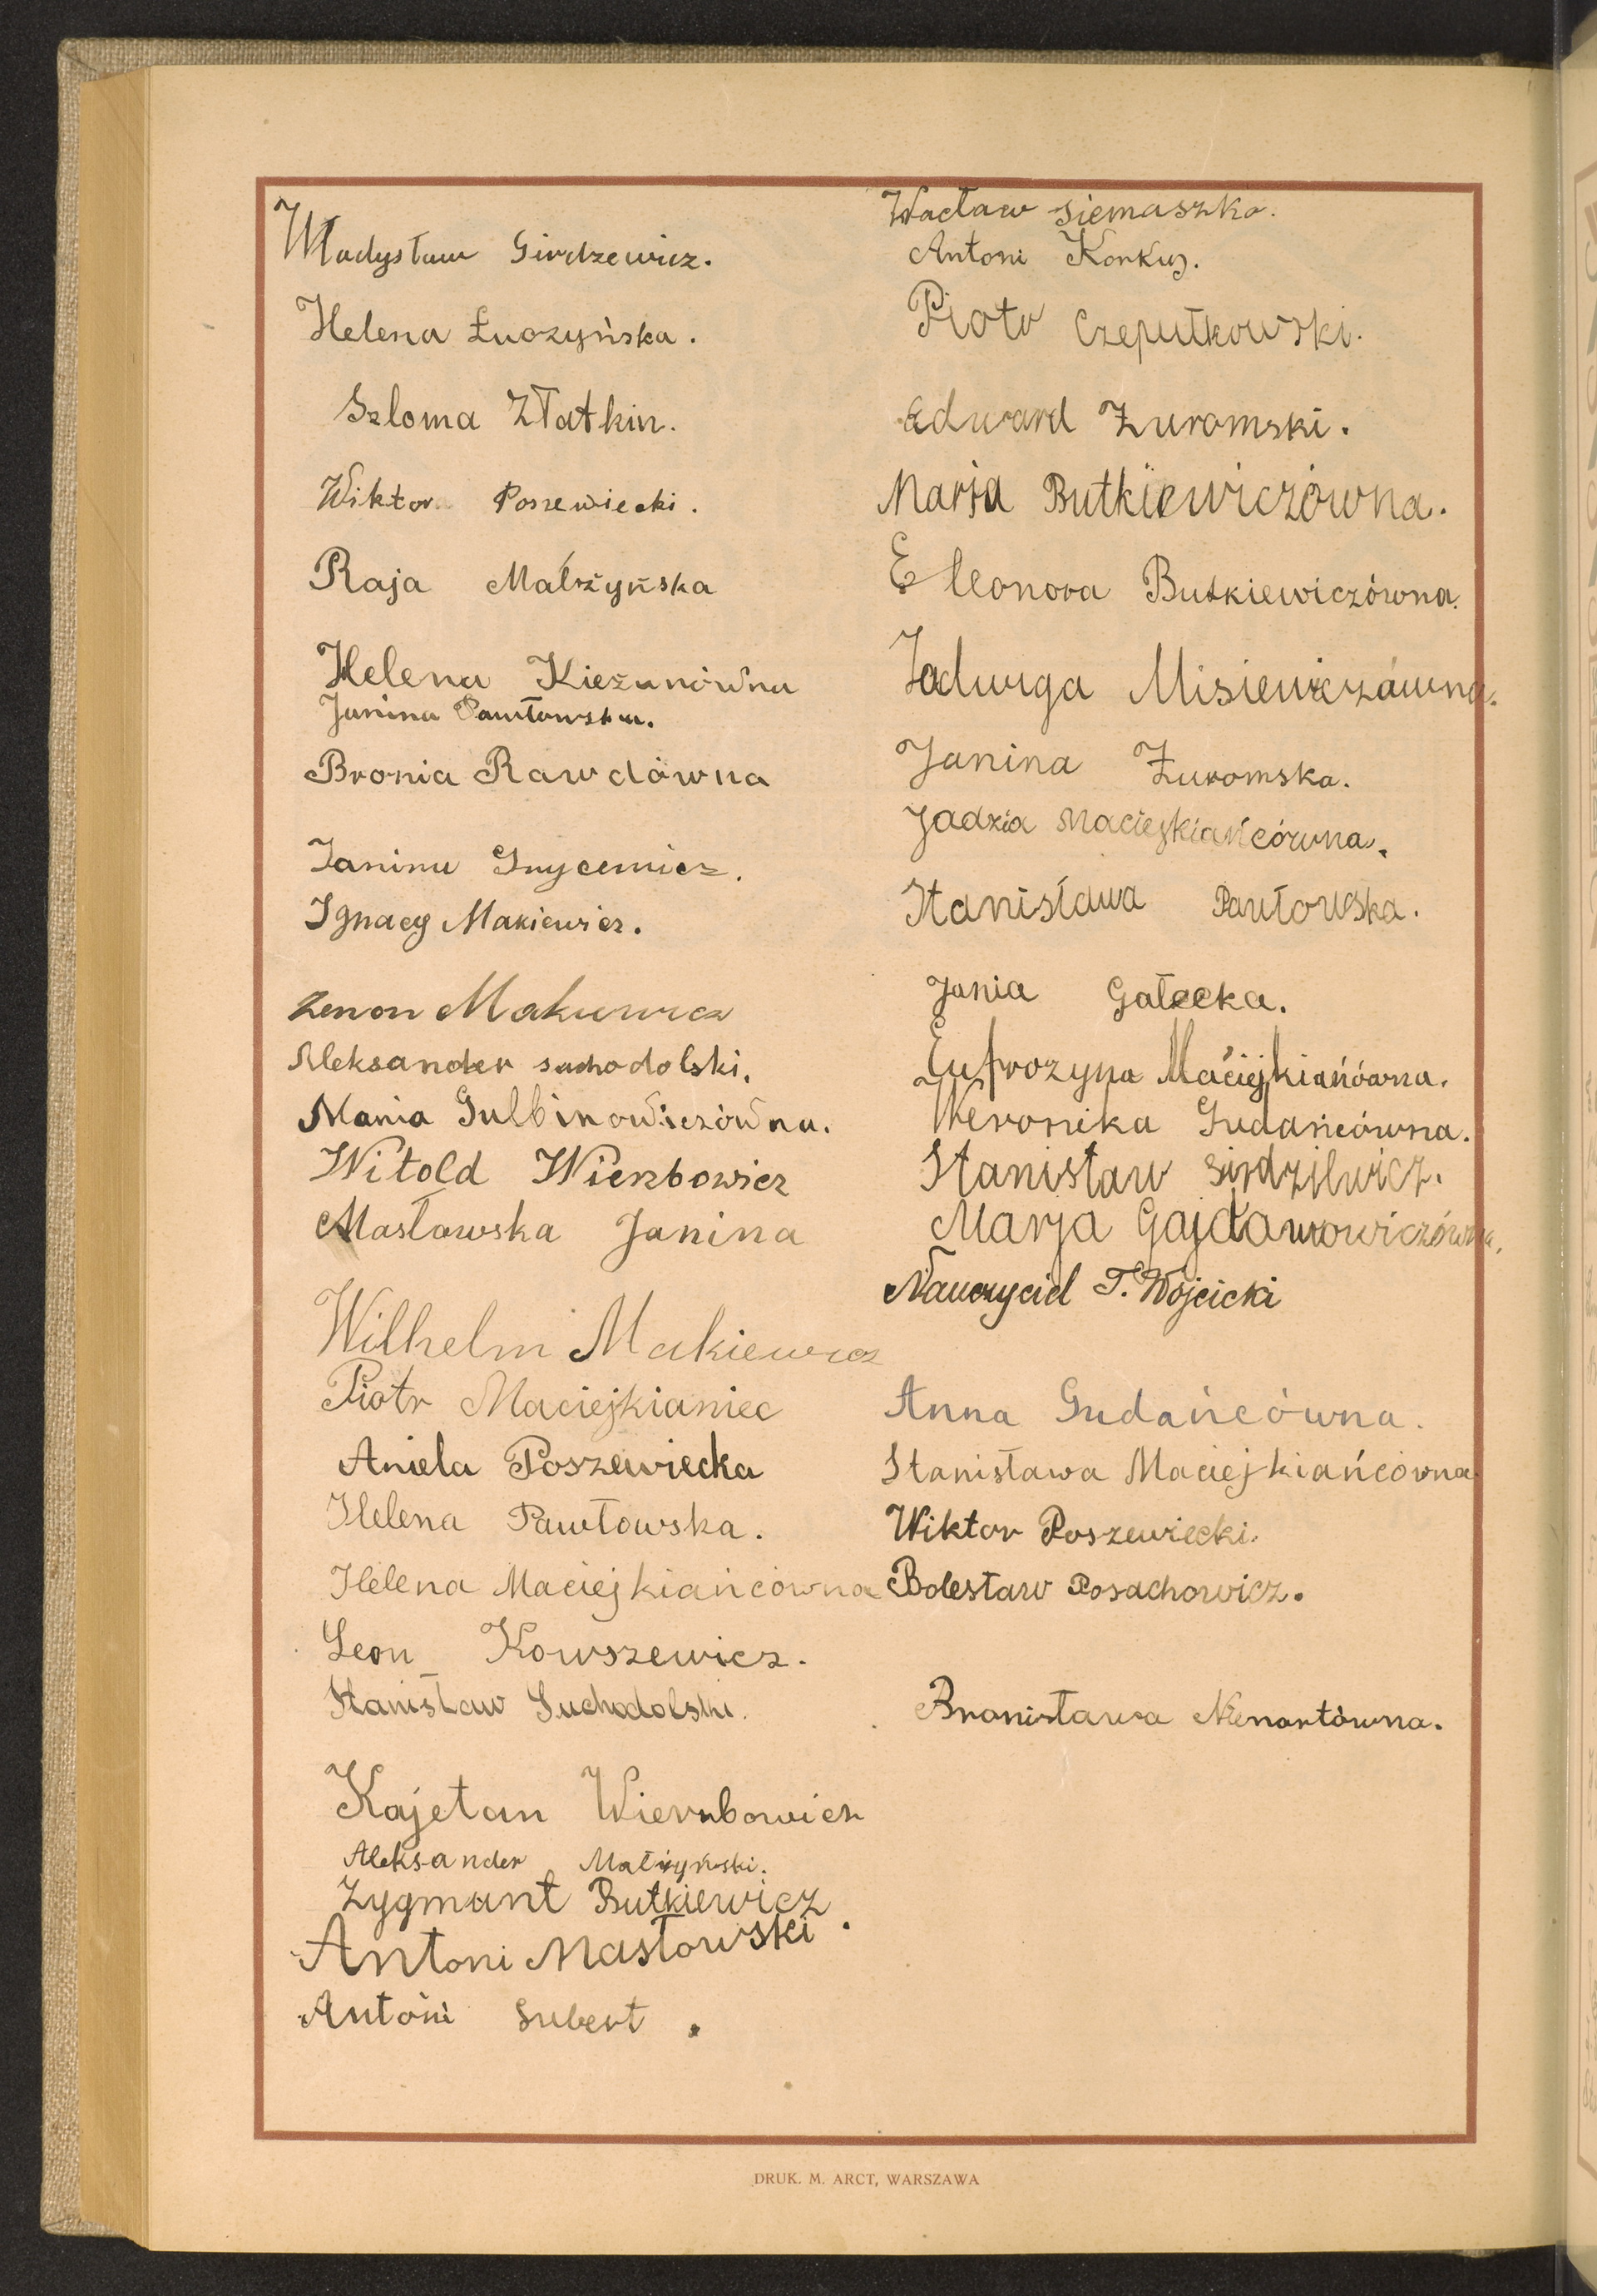 Władysław Girdzewicz.
Helena Łuczyńska.
Szloma Złatkin.
Wiktor Poszewiecki.
Raja Małżyńska
Helena Kieżunówna
Janina Pawłowska.
Bronia Rawdówna
Janina
Ignacy Makiewicz.
Zenon Makiewicz
Aleksander suchodolski.
Mania Gulbinowiczówna.
Witold Wierzbowicz
Masławska Janina
Wilhelm Makiewicz
Piotr Maciejkianiec
Aniela Poszewiecka
Helena Pawłowska.
Helena Maciejkiańcówna
Leon Kowszewicz.
Stanisław Suchodolski.
Kajetan Wierzbowicz
Aleksander Małżyński.
Zygmunt Butkiewicz.
Antoni Masłowski
Antoni Subert.
Wacław Siemaszko.
Antoni Korkuz.
Piotr Czepułkowski.
Edward Żuromski.
Marja Butkiewiczówna.
Eleonora Butkiewiczówna.
Jadwiga Misiewiczówna.
Janina Żuromska.
Jadzia Maciejkiańcówna.
Stanisława Pawłowska.
Jania Gałecka.
Eufrozyna Maciejkiańówna.
Weronika Gudańcówna.
Stanisław
Marja Gajdamowiczówna.
Nauczyciel T. Wójcicki
Anna Gudańcówna.
Stanisława Maciejkiańcówna.
Wiktor Poszewiecki.
Bolesław Posachowicz.
Bronisława Nienartówna.
DRUK. M. ARCT, WARSZAWA